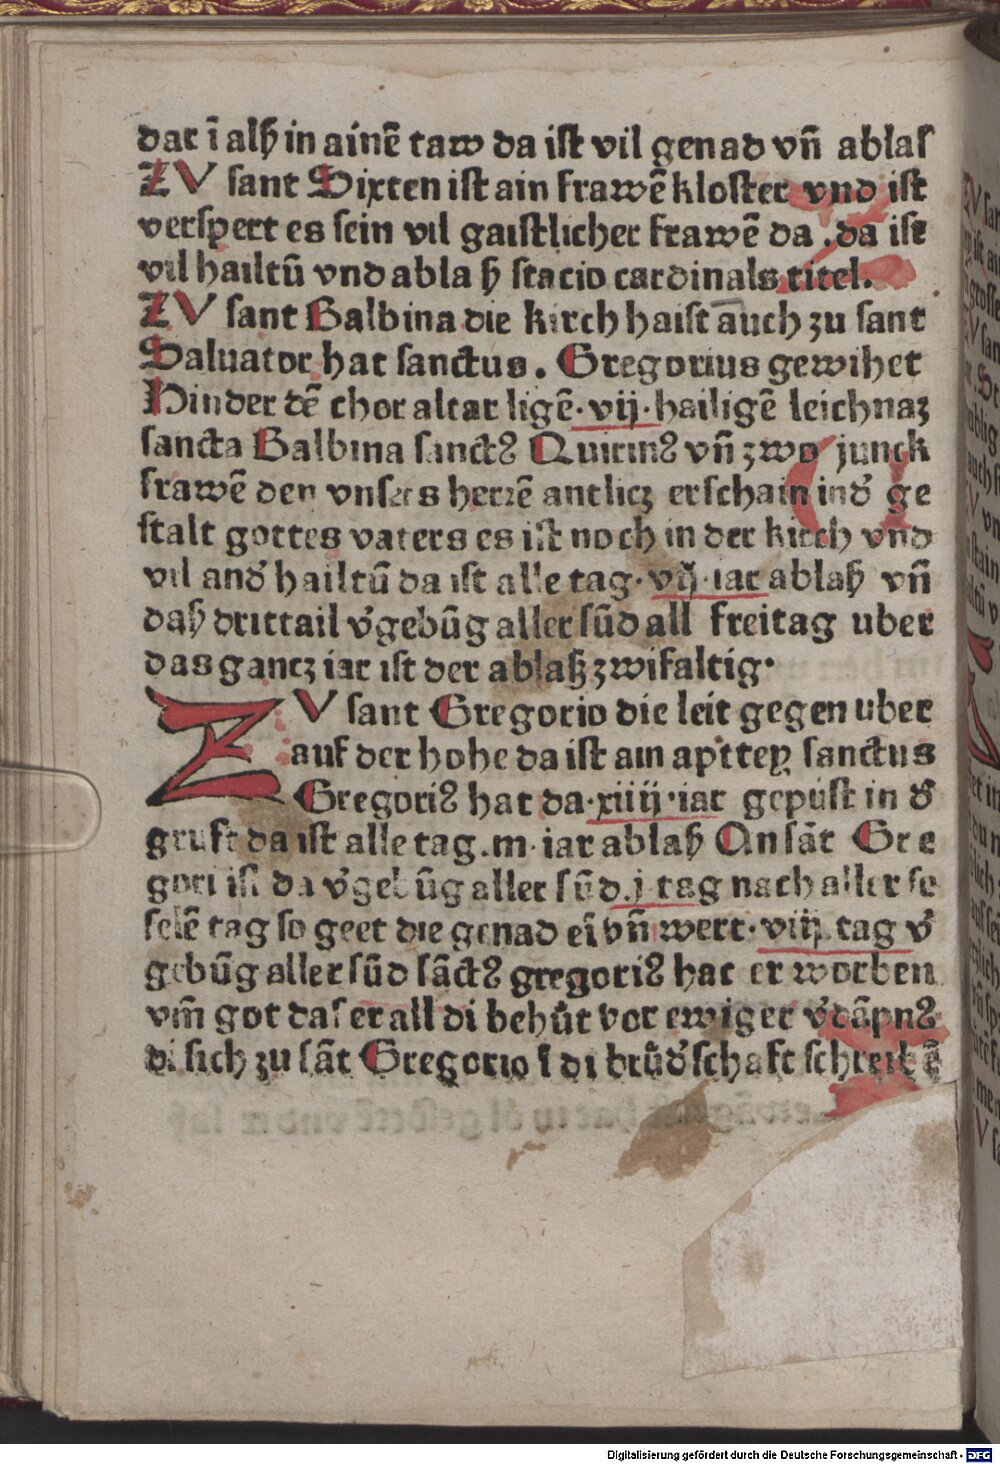 dar ī alß in ainē taw da ist vil genad vn̄ ablas
ZV sant Sixten ist ain frawē kloster vnd ist
verspert es sein vil gaistlicher frawē da . da ist
vil hailtū vnd abla ß stacio cardinals titel.
ZV sant Balbina die kirch haist auch zu sant
Saluator hat sanctus . Gregorius gewihet
Hinder dē chor altar ligē · vij · hailigē leichnaz
sancta Balbina sanctꝰ Quirinꝰ vn̄ zwo junck
frawē den vnsers herrē antlicz erschain in d̄ ge
stalt gottes vaters es ist noch in der kirch vnd
vil and̄ hailtū da ist alle tag · vij · iar ablaß vn̄
daß drittail v̄gebūg aller sūd all freitag uber
das gancz iar ist der ablaß zwifaltig ·
ZV sant Gregorio die leit gegen uber
auf der hohe da ist ain apttey sanctus
Gregoriꝰ hat da · xiiij · iar gepust in d̄
gruft da ist alle tag . m · iar ablaß An sāt Gre
gori ist da v̄gebūg aller sūd . j · tag nach aller se
selē tag so geet die genad eī vn̄ wert · viij . tag v̄
gebūg aller sūd sāctꝰ gregoriꝰ hat er worben
vm̄ got das er all di behůt vor ewiger v̄dāpnꝰ
di sich zu sāt Gregorio ī di brůd̄schaft schreibē
Digitalisierung gefördert durch die Deutsche Forschungsgemeinschaft - DFG